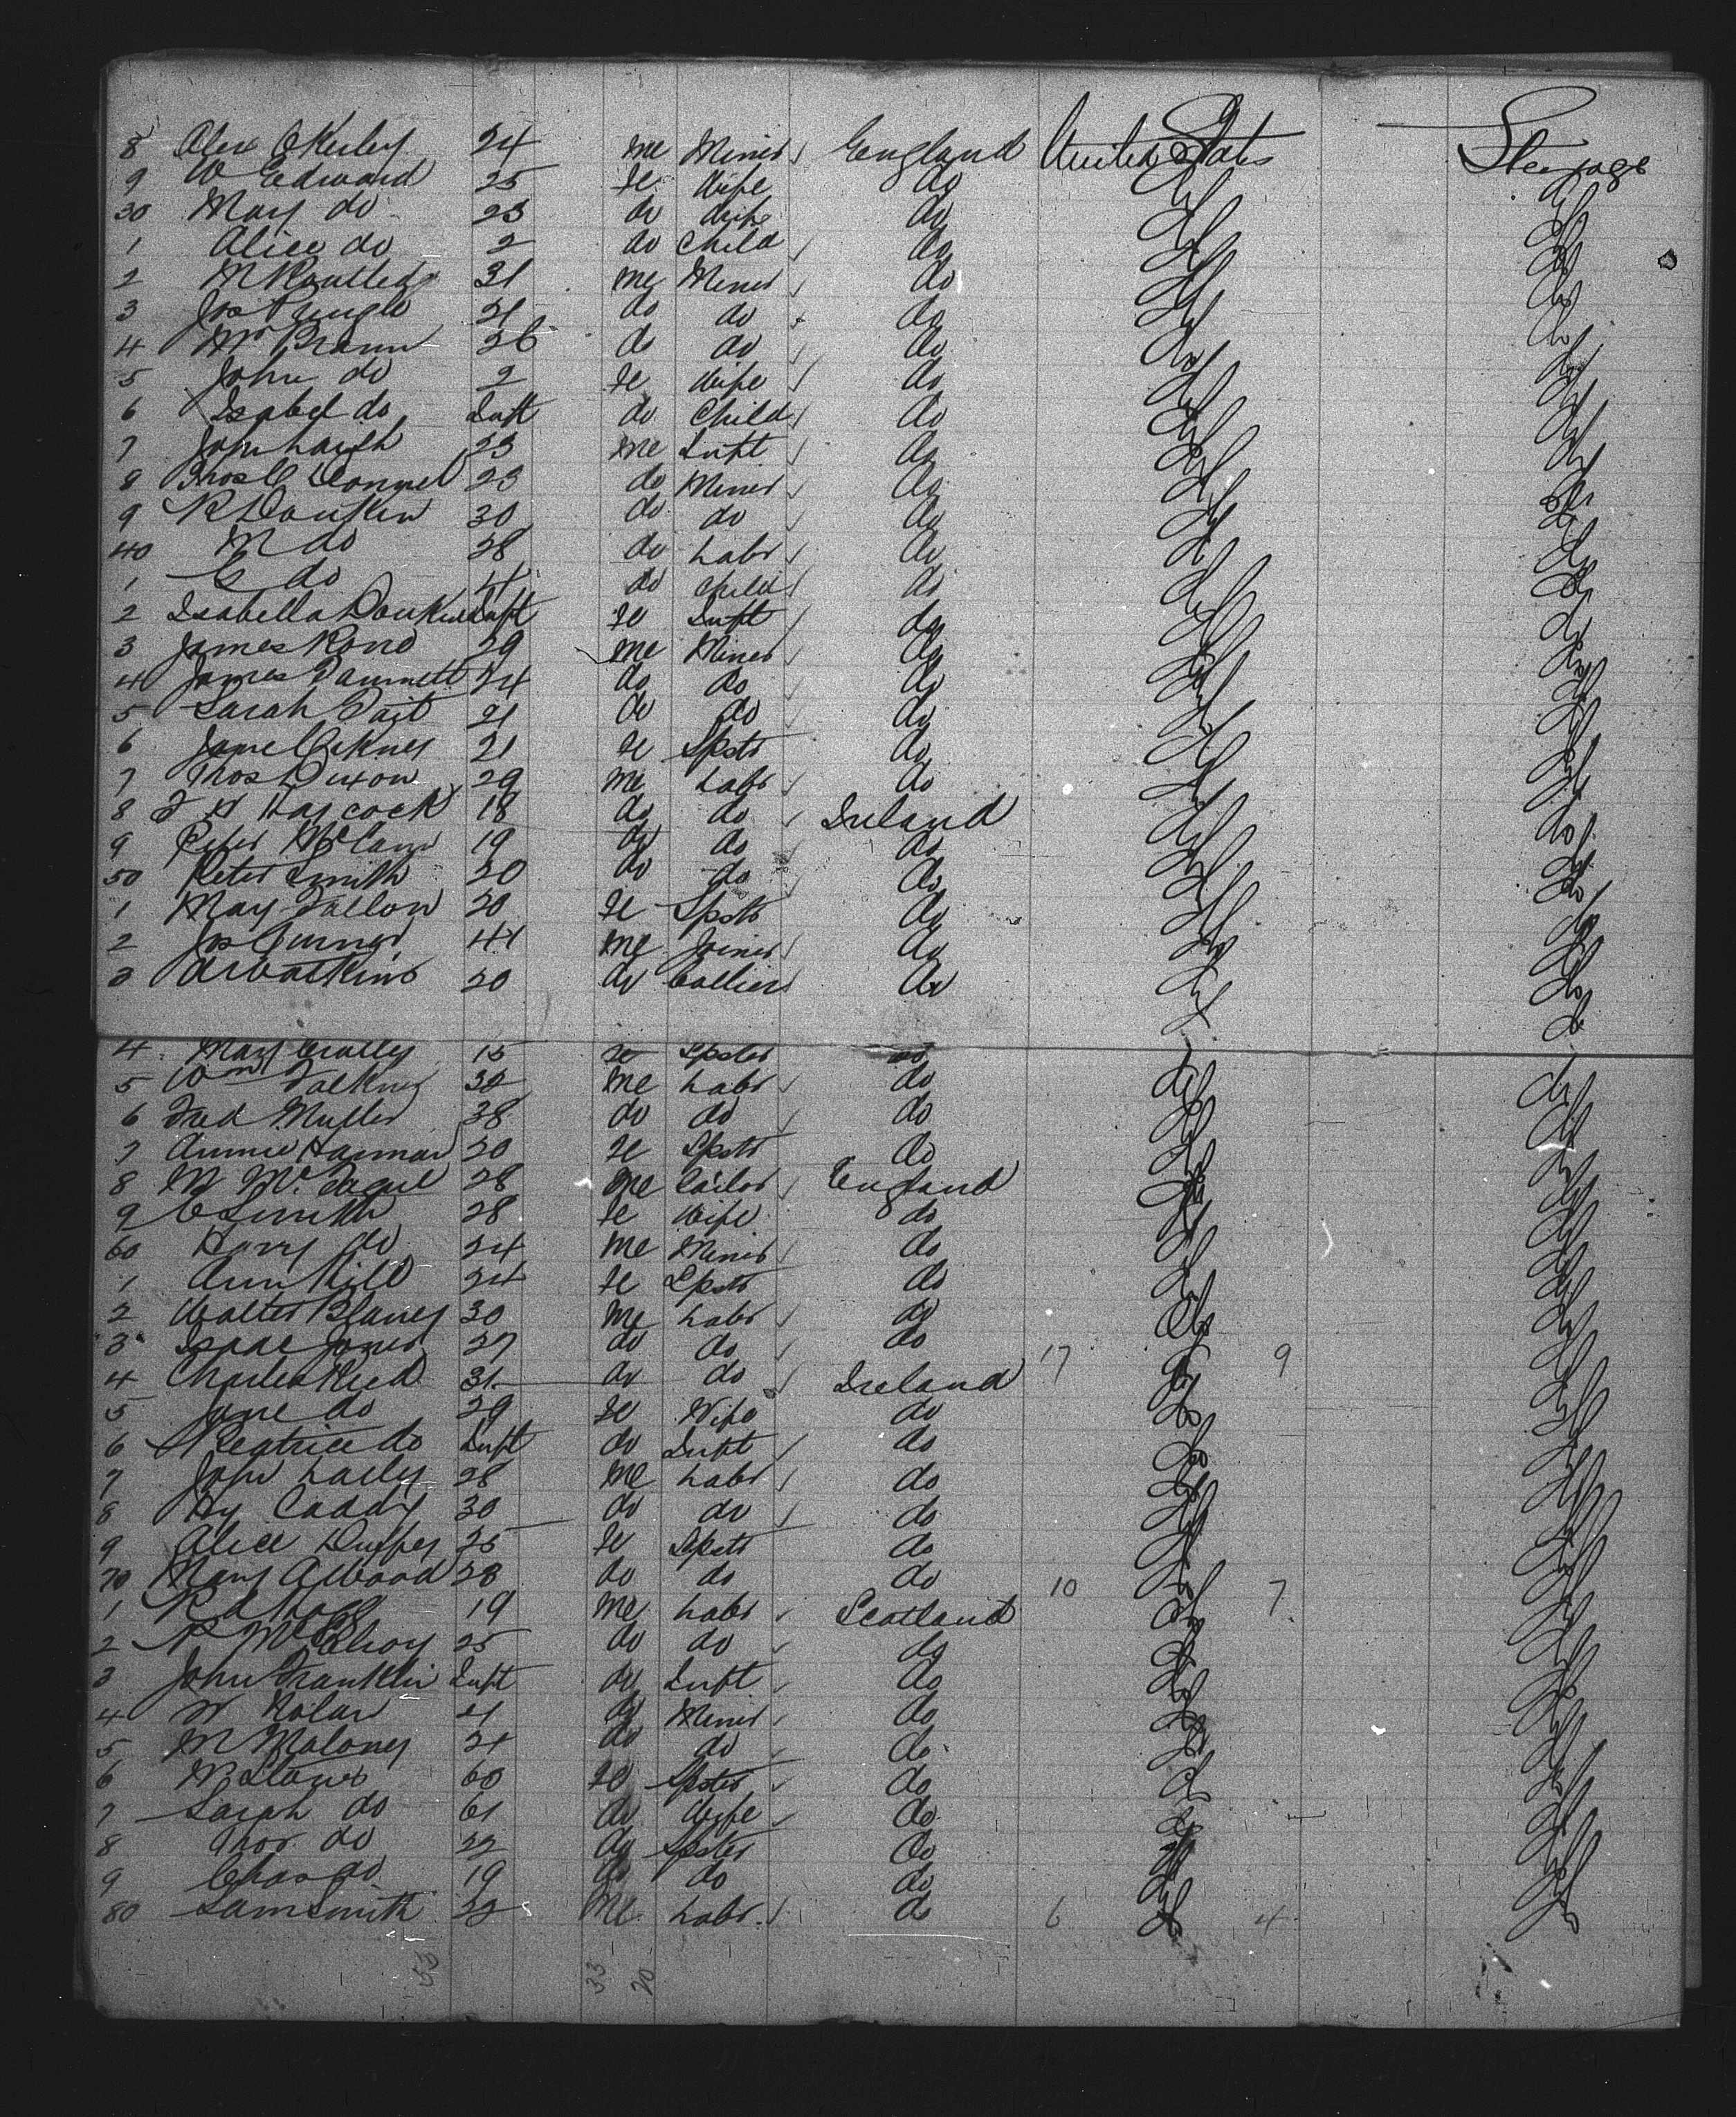 8 Alex Okerley 24 me Miner England United States Steerage
9 W Edward 25 fe Wife do do do
30 Mary do 23 do Wife do do do
1 Alice do 2 do Child do do do
2 M Routledge 31 me Miner do do do
3 Jos Pringle 21 do do do do do
4 36 do do do do do
5 John do 2 fe Wife do do do
6 Isabel do Inft do Child do do do
7 John 23 me Inft do do do
8 Thos O Donnel 23 do Miner do do do
9 R Donkin 30 do do do do do
40 M do 28 do Labr do do do
1 C do 4 do Child do do do
2 Isabella Donkin Inft fe Inft do do do
3 James Rono 29 me Miner do do do
4 James Dannett 24 do do do do do
5 Sarah Tait 21 do do do do do
6 Jane 21 fe Spstr do do do
7 Thos Dixon 29 me Labr do do do
8 Haycock 18 do do Ireland do do
9 Peter McCann 19 do do do do do
50 Peter Smith 20 do do do do do
1 May Fallon 20 fe Spstr do do do
2 Jos Turner 41 me Joiner do do do
3 A Watkins 20 do Collier do do do
4 Mary Crolley 15 fe Spster do
5 Wm Falkner 32 me Labr do do do
6 Fred Muller 38 do do do do do
7 Annie Hannan 20 fe Spstr do do do
8 M McTague 28 me Tailor England do do
9 C Smith 28 fe Wife do do do
60 Harry do 24 me Miner do do do
1 Ann Hill 24 fe Spstr do do do
2 Walter Blaney 30 me Labr do do do
3 Isaac Jones 27 do do do 17 do 9 do
4 Charles Reed 31 do do Ireland do do
5 Jane do 29 fe Wife do do do
6 Beatrice do Inft do Inft do do do
7 John Lally 28 me Labr do do do
8 Hy Caddy 30 do do do do do
9 Alice Duffey 25 fe Spstr do do do
70 Mary Atwood 28 do do do 10 do 7 do
1 19 me Labr Scotland do do
2 McElroy 25 do do do do do
3 John Franklin Inft do Inft do do do
4 Nolan 21 do Miner do do do
5 M Maloney 24 do do do do do
6 60 fe Spster do do do
7 Sarah do 61 do Wife do do do
8 Thos do 22 do Spster do do do
9 Chas do 19 do do do do do
80 Sam Smith 22 me Labr do 6 do 4 do
53 33 20